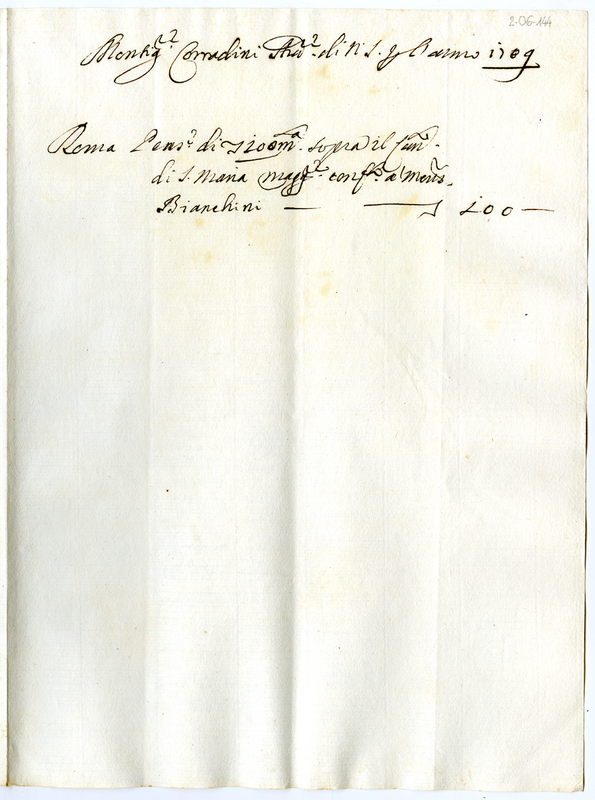 2-06-144
Monsig.r Corradini Aud.re di N. S. p l'anno 1709
Roma Pens.e di 200 m.ta sopra il
di S. Maria Magg.re conf.ta a Mons.
Bianchini — — 200 —